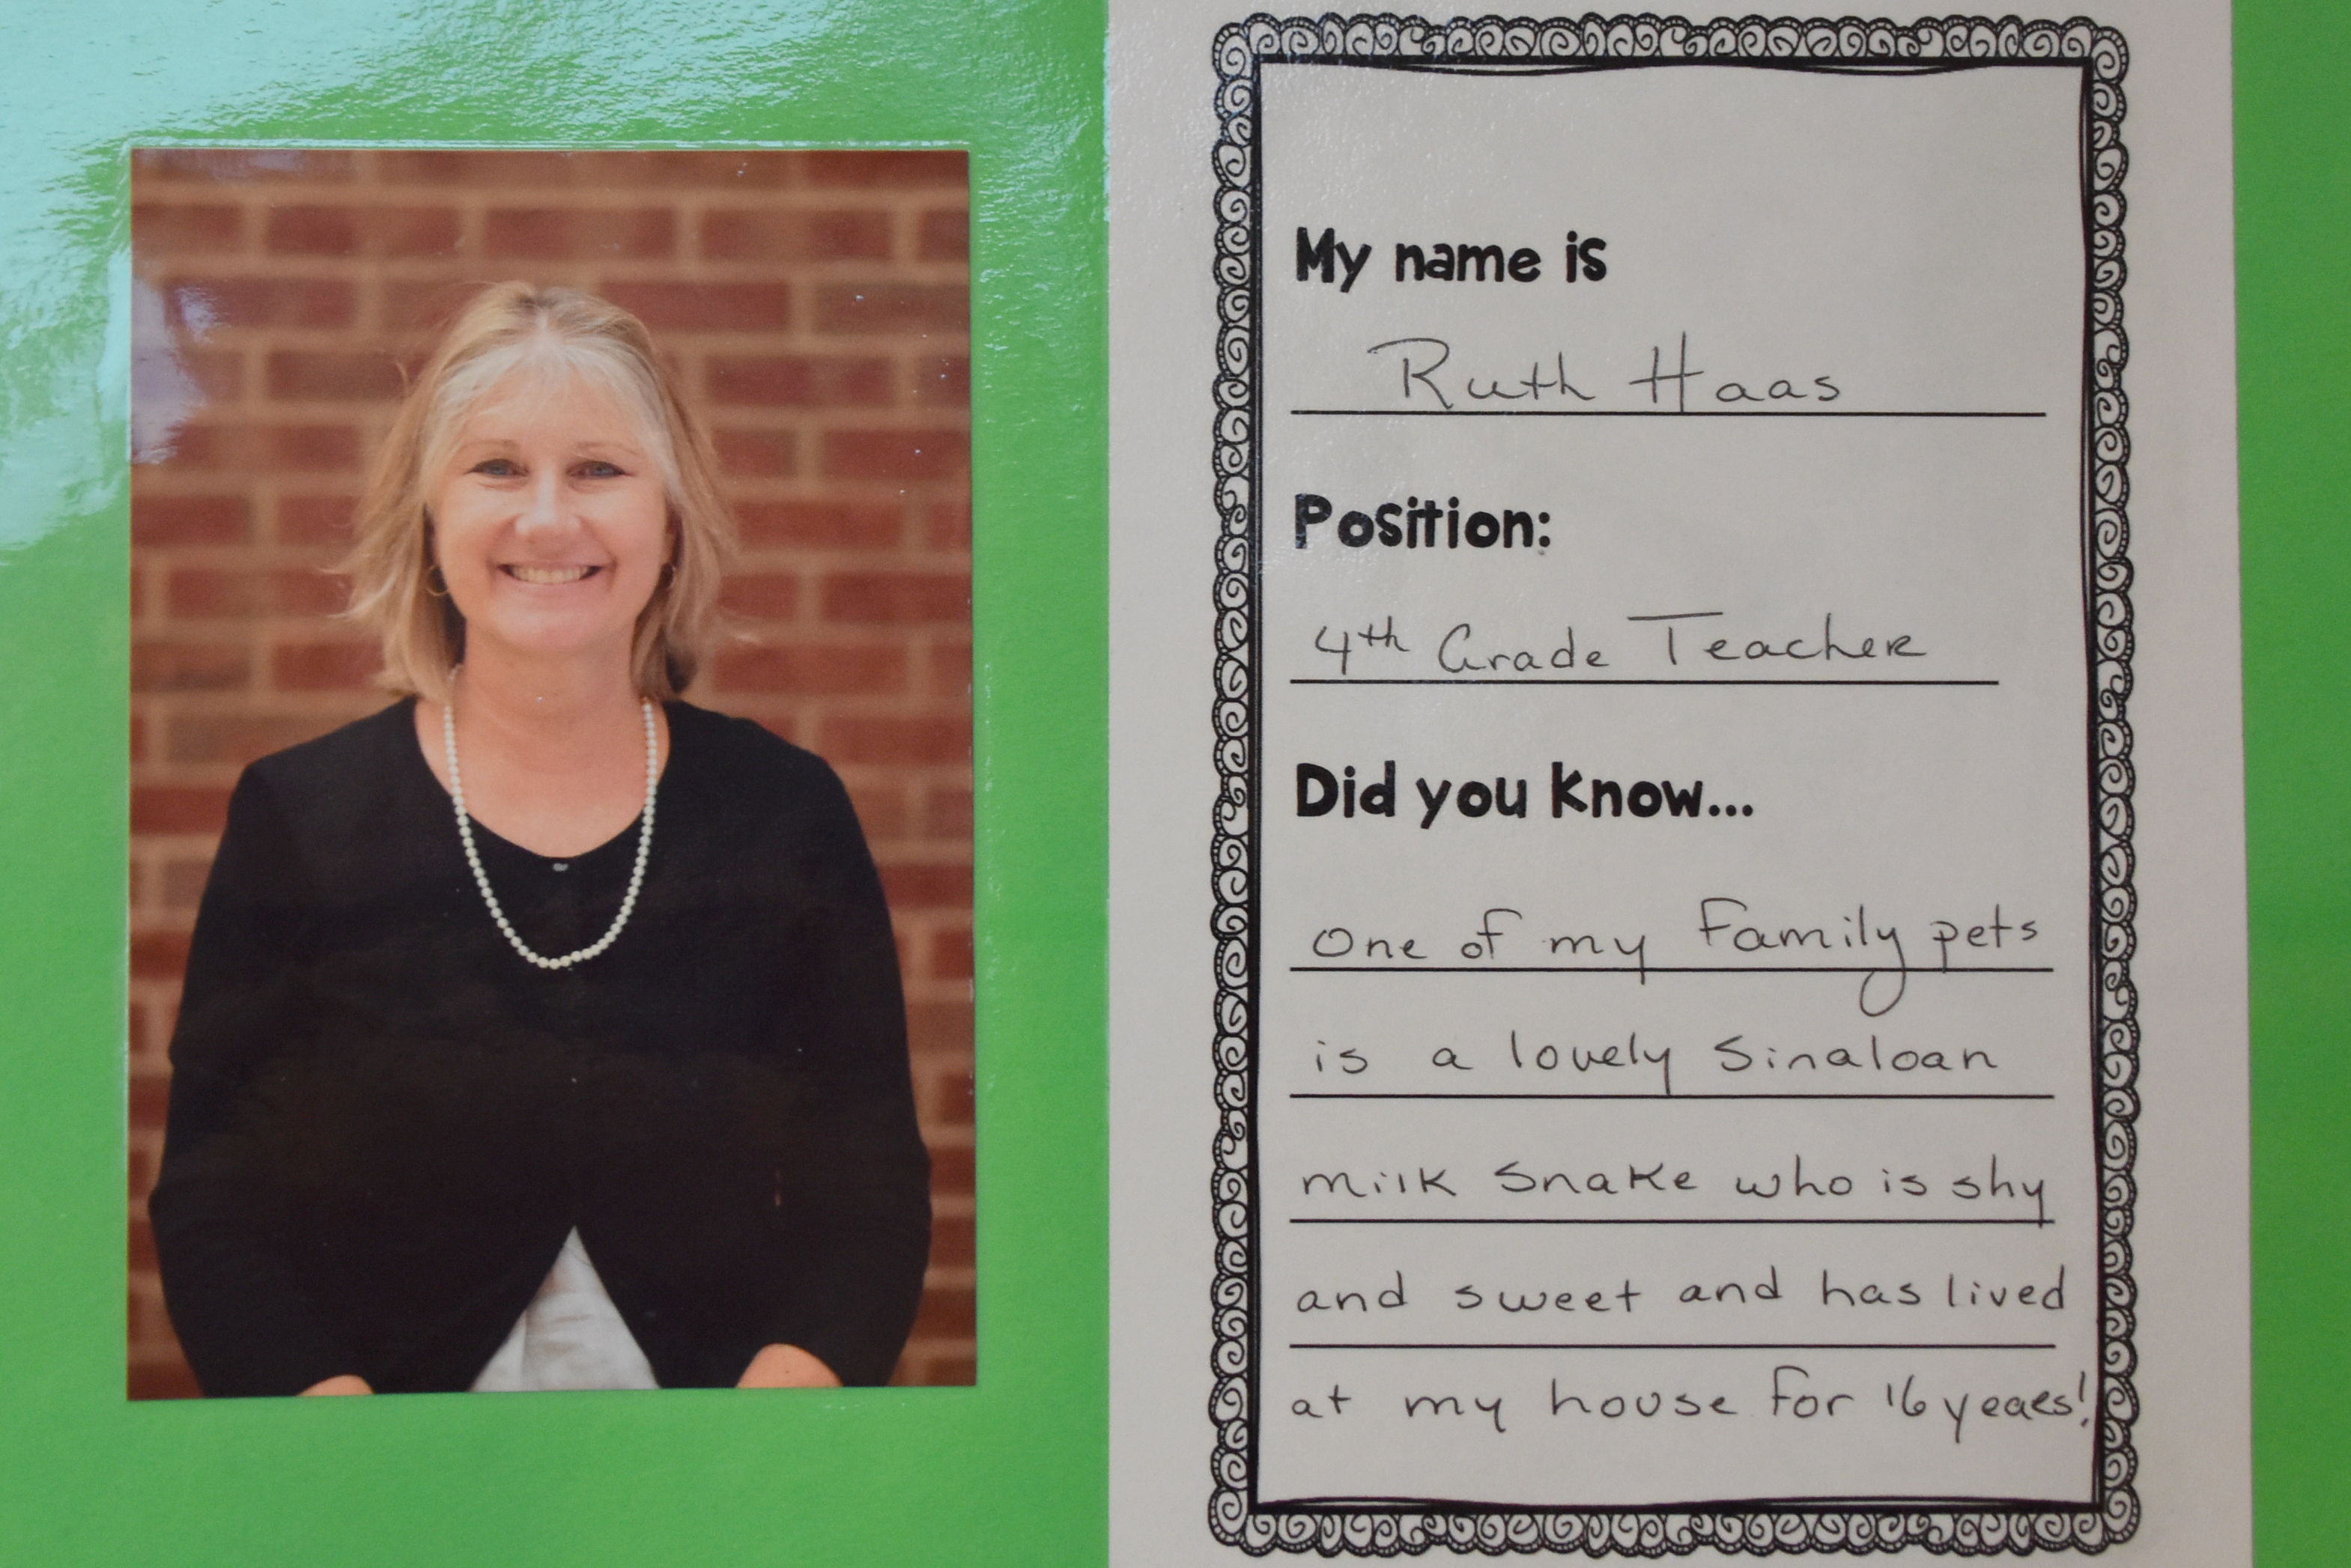 My name is
Ruth Haas
Position:
4th Grade Teacher
Did you know...
One of my Family pets
is a lovely Sinaloan
milk snake who is shy
and sweet and has lived
at my house for 16 years!